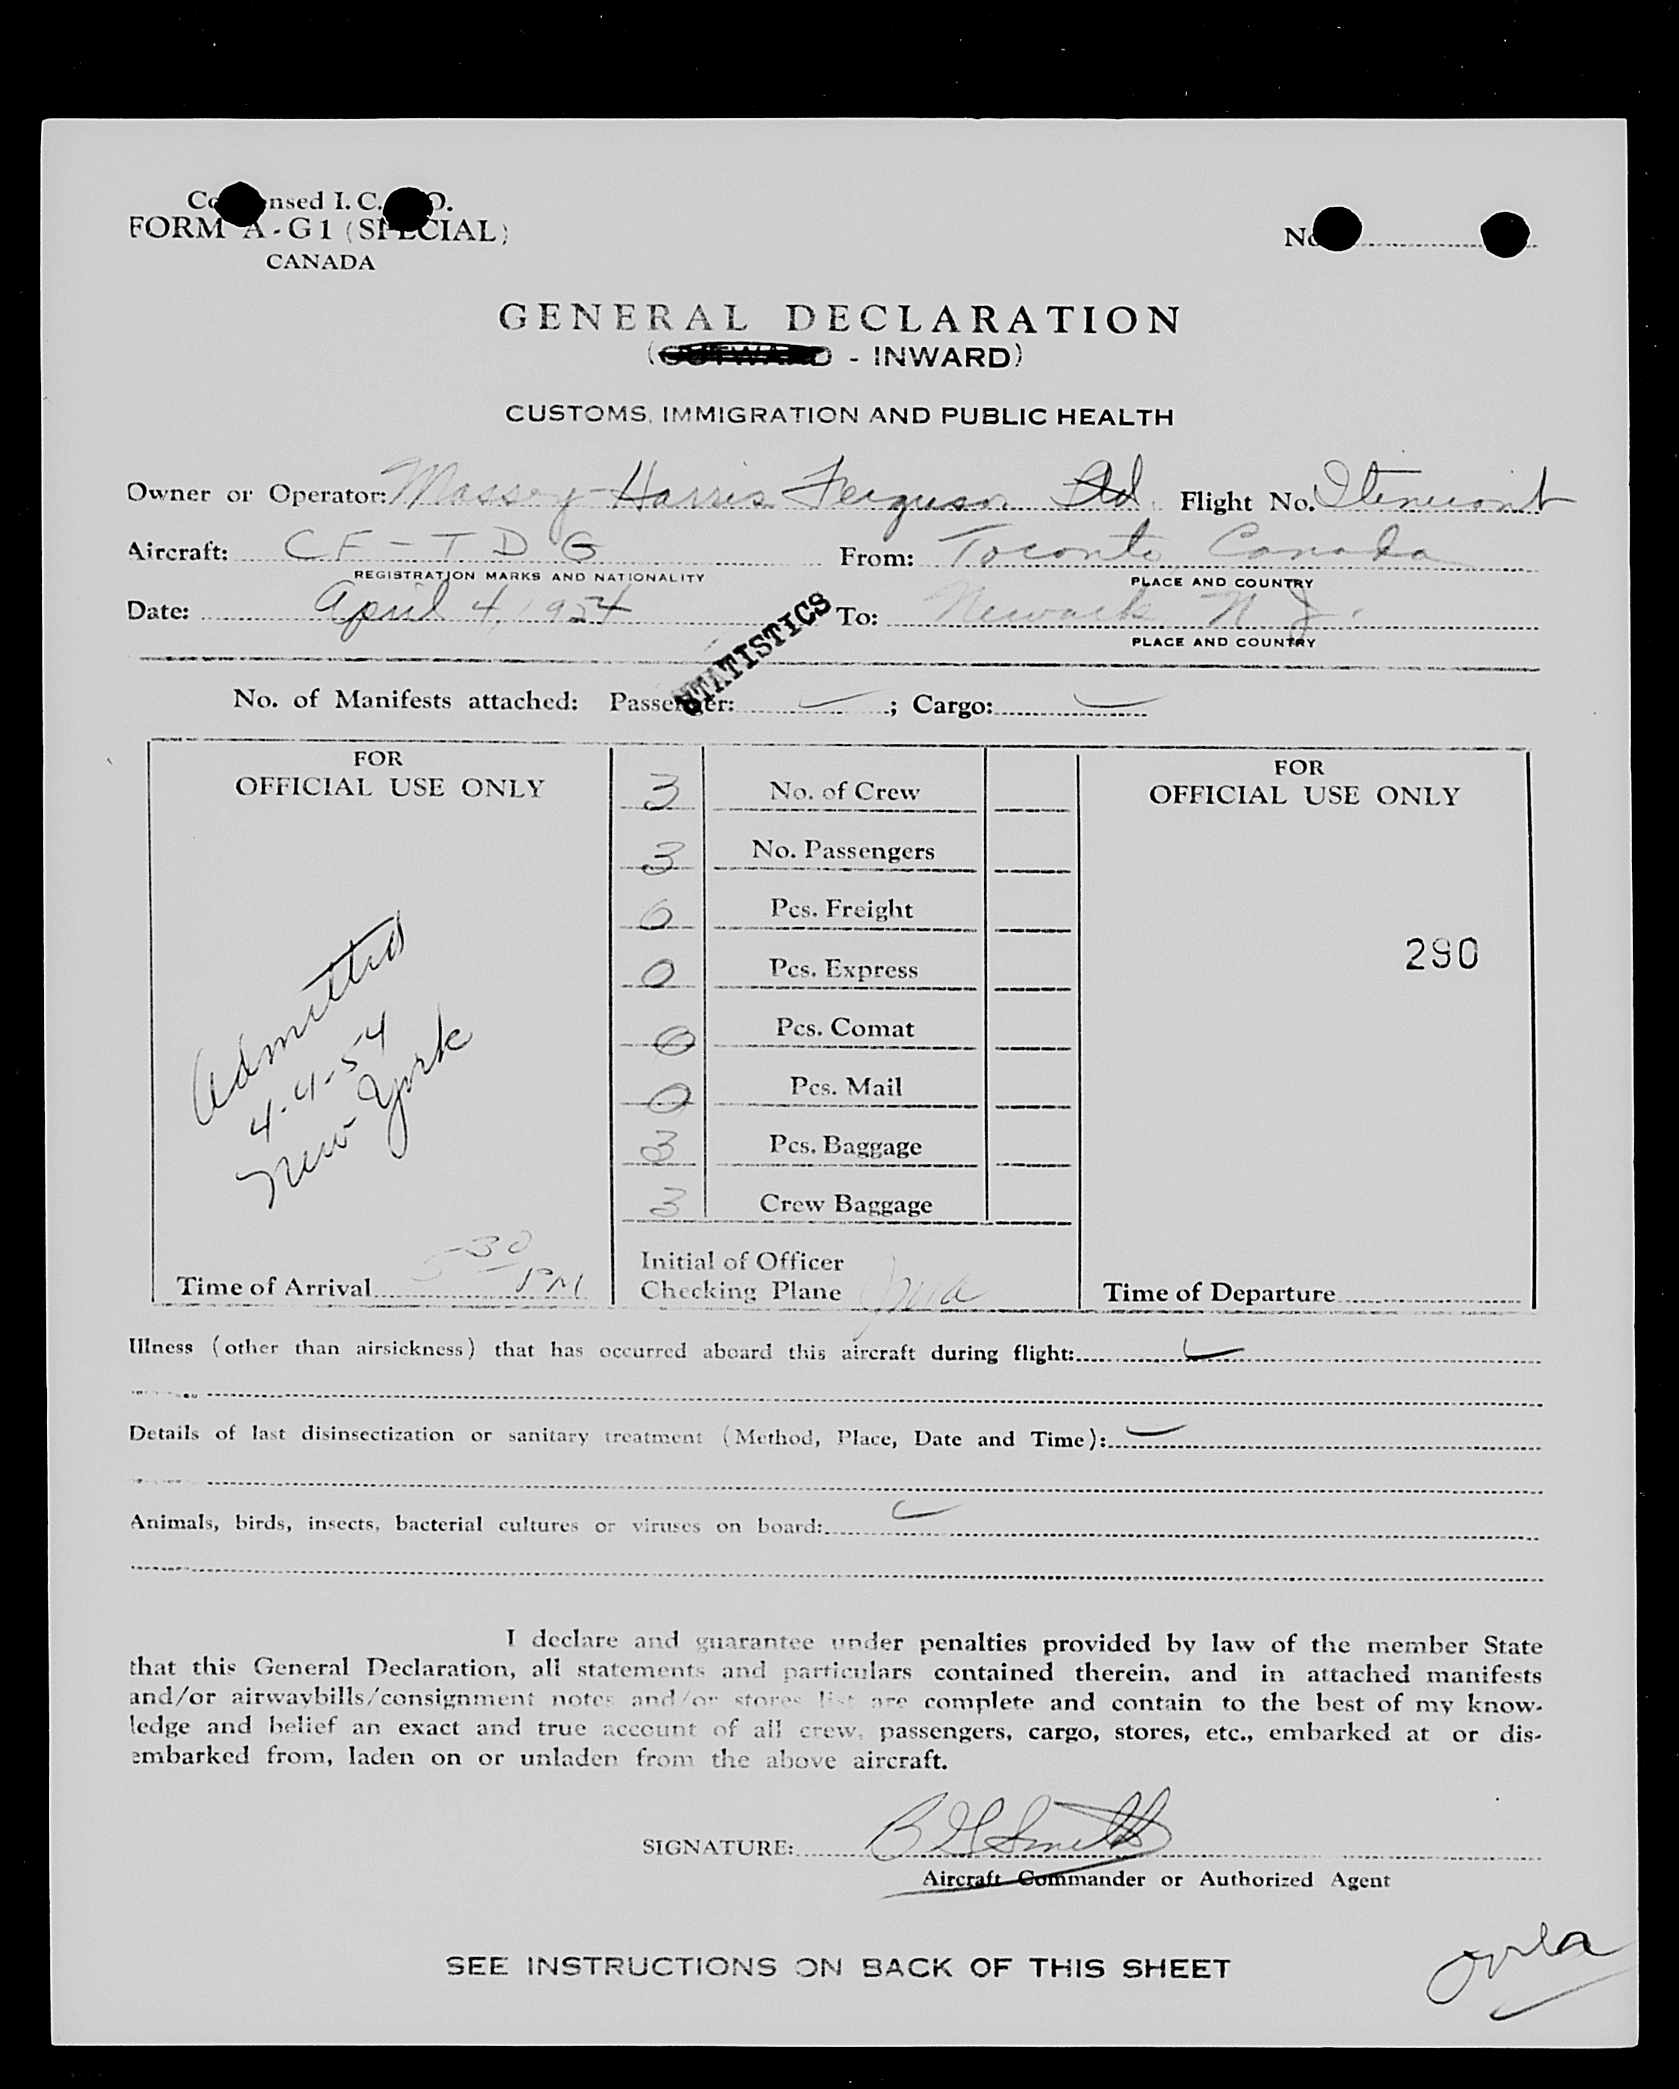 Condensed I. C. A. O.
FORM A-G1 (SPECIAL)
CANADA
No.
GENERAL DECLARATION
(OUTWARD - INWARD)
CUSTOMS, IMMIGRATION AND PUBLIC HEALTH
Owner or Operator: Massey-Harris Ferguson Ltd. Flight No. Itinerant
Aircraft: CF-TDG From: Toronto Canada
REGISTRATION MARKS AND NATIONALITY PLACE AND COUNTRY
Date: April 4, 1954 To: Newark N J.
PLACE AND COUNTRY
STATISTICS
No. of Manifests attached: Passenger: ; Cargo:
FOR
OFFICIAL USE ONLY
Admitted
4-4-54
New York
Time of Arrival 5-30 PM
3 No. of Crew
3 No. Passengers
0 Pcs. Freight
0 Pcs. Express
0 Pcs. Comat
0 Pcs. Mail
3 Pcs. Baggage
3 Crew Baggage
Initial of Officer
Checking Plane
FOR
OFFICIAL USE ONLY
290
Time of Departure
Illness (other than airsickness) that has occurred aboard this aircraft during flight:
Details of last disinsectization or sanitary treatment (Method, Place, Date and Time):
Animals, birds, insects, bacterial cultures or viruses on board:
I declare and guarantee under penalties provided by law of the member State
that this General Declaration, all statements and particulars contained therein, and in attached manifests
and/or airwaybills/consignment notes and/or stores list are complete and contain to the best of my know-
ledge and belief an exact and true account of all crew, passengers, cargo, stores, etc., embarked at or dis-
embarked from, laden on or unladen from the above aircraft.
SIGNATURE: B G Smith
Aircraft Commander or Authorized Agent
SEE INSTRUCTIONS ON BACK OF THIS SHEET